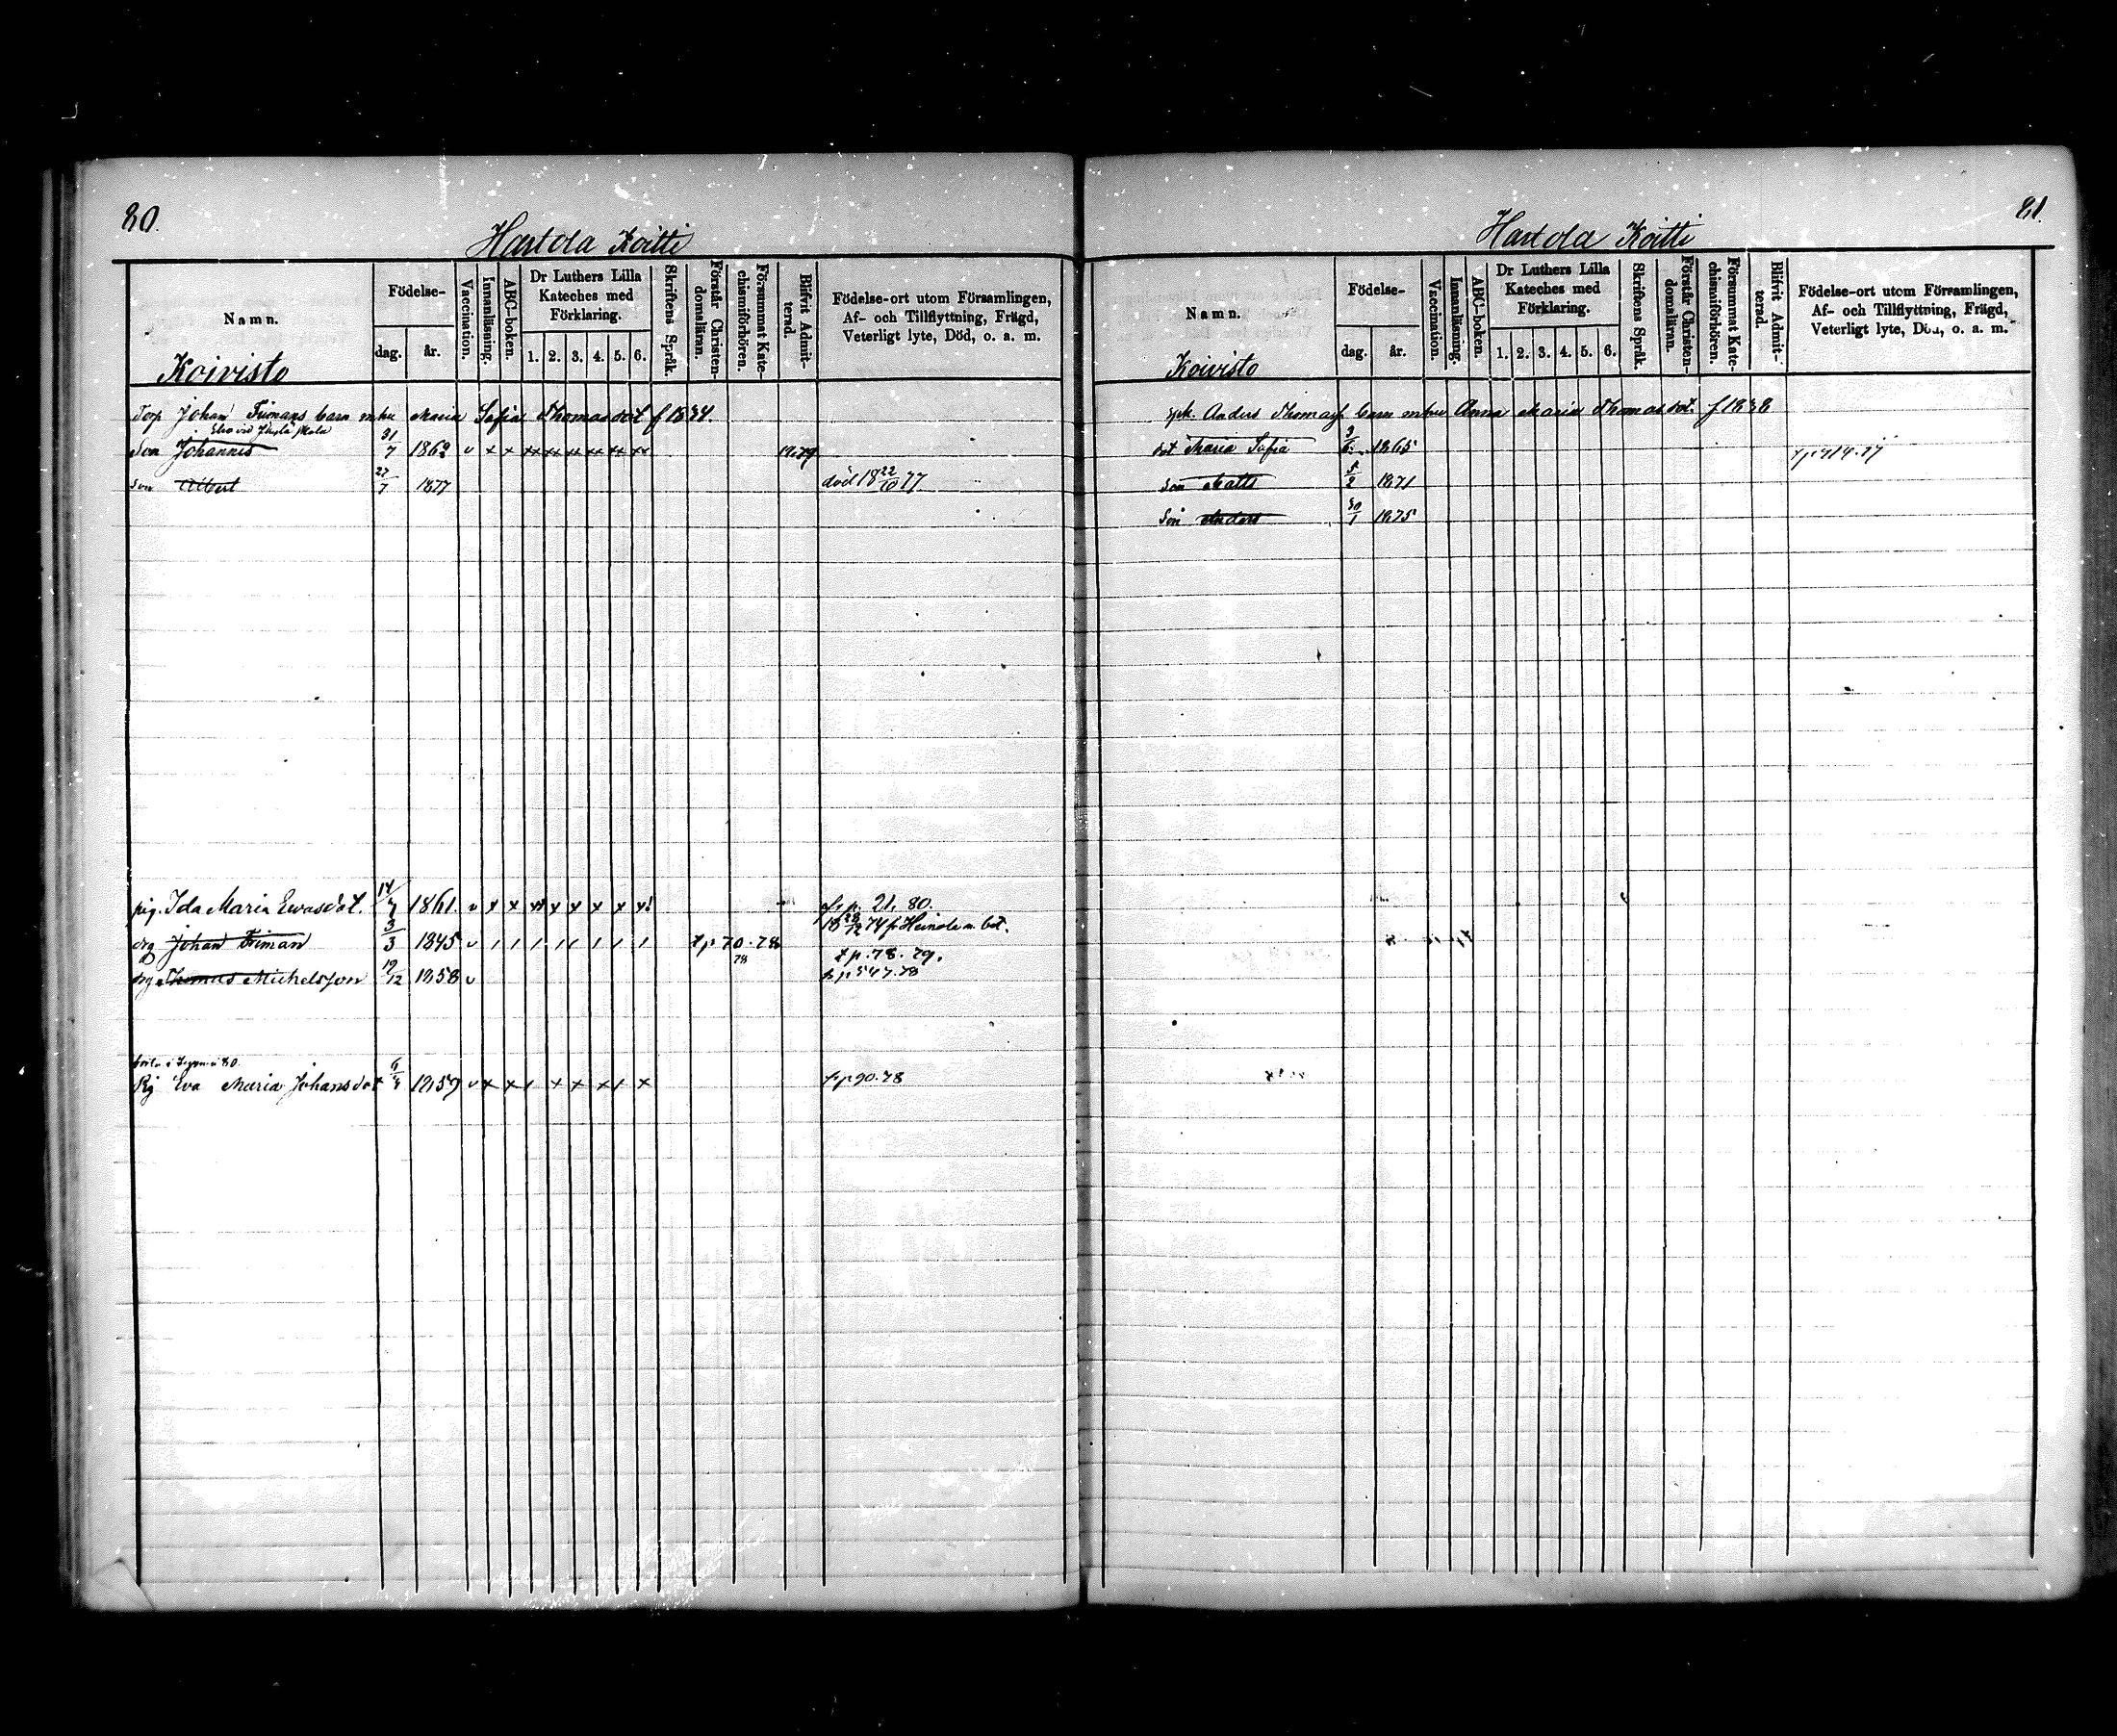 80.
Hartola Koitti
Namn.
Födelse-
dag.
år.
Vaccination.
Innanläsning.
ABC-boken.
Dr Luthers Lilla
Kateches med
Förklaring.
1. 2. 3. 4. 5. 6.
Skriftens Språk.
Förstår Christen-
domsläran.
Försummat Kate-
chismiförhören.
Blifvit Admit-
terad.
Födelse-ort utom Församlingen,
Af- och Tillflyttning, Frägd,
Veterligt lyte, Död, o. a. m.
Koivisto
Torp Johan Frimans barn m hu Maria Sofia Thomasdot f 1834.
Son Johannes 31/7 1862 v x x xx xx xx xx xx xx 1879
Son Albert 27/7 1877 död 18 22/10 77
pig. Ida Maria Ewasdot. 14/7 1861. v x x x x x x x x f. p. 21. 80.
18 28/12 74 fr Heinola m. bet.
drg Johan Friman 3/3 1845 v / / / / / / / / t p 70. 78
78
t p. 78. 79.
drg Thomas Michelsson 19/12 1858 v t p 547. 78
Pig Eva Maria Johansdot 6/4 1857 v x x / x x x / x f p 90. 78
81.
Hartola Koitti
Namn.
Födelse-
dag.
år.
Vaccination.
Innanläsning.
ABC-boken.
Dr Luthers Lilla
Kateches med
Förklaring.
1. 2. 3. 4. 5. 6.
Skriftens Språk.
Förstår Christen-
domsläran.
Försummat Kate-
chismiförhören.
Blifvit Admit-
terad.
Födelse-ort utom Församlingen,
Af- och Tillflyttning, Frägd,
Veterligt lyte, Död, o. a. m.
Koivisto
Anders Thomass barn m hu Anna Maria Thomasdot. f 1838
dot Maria Sofia 3/6 1865
Son Matts 5/2 1871
Son Anders 30/1 1875